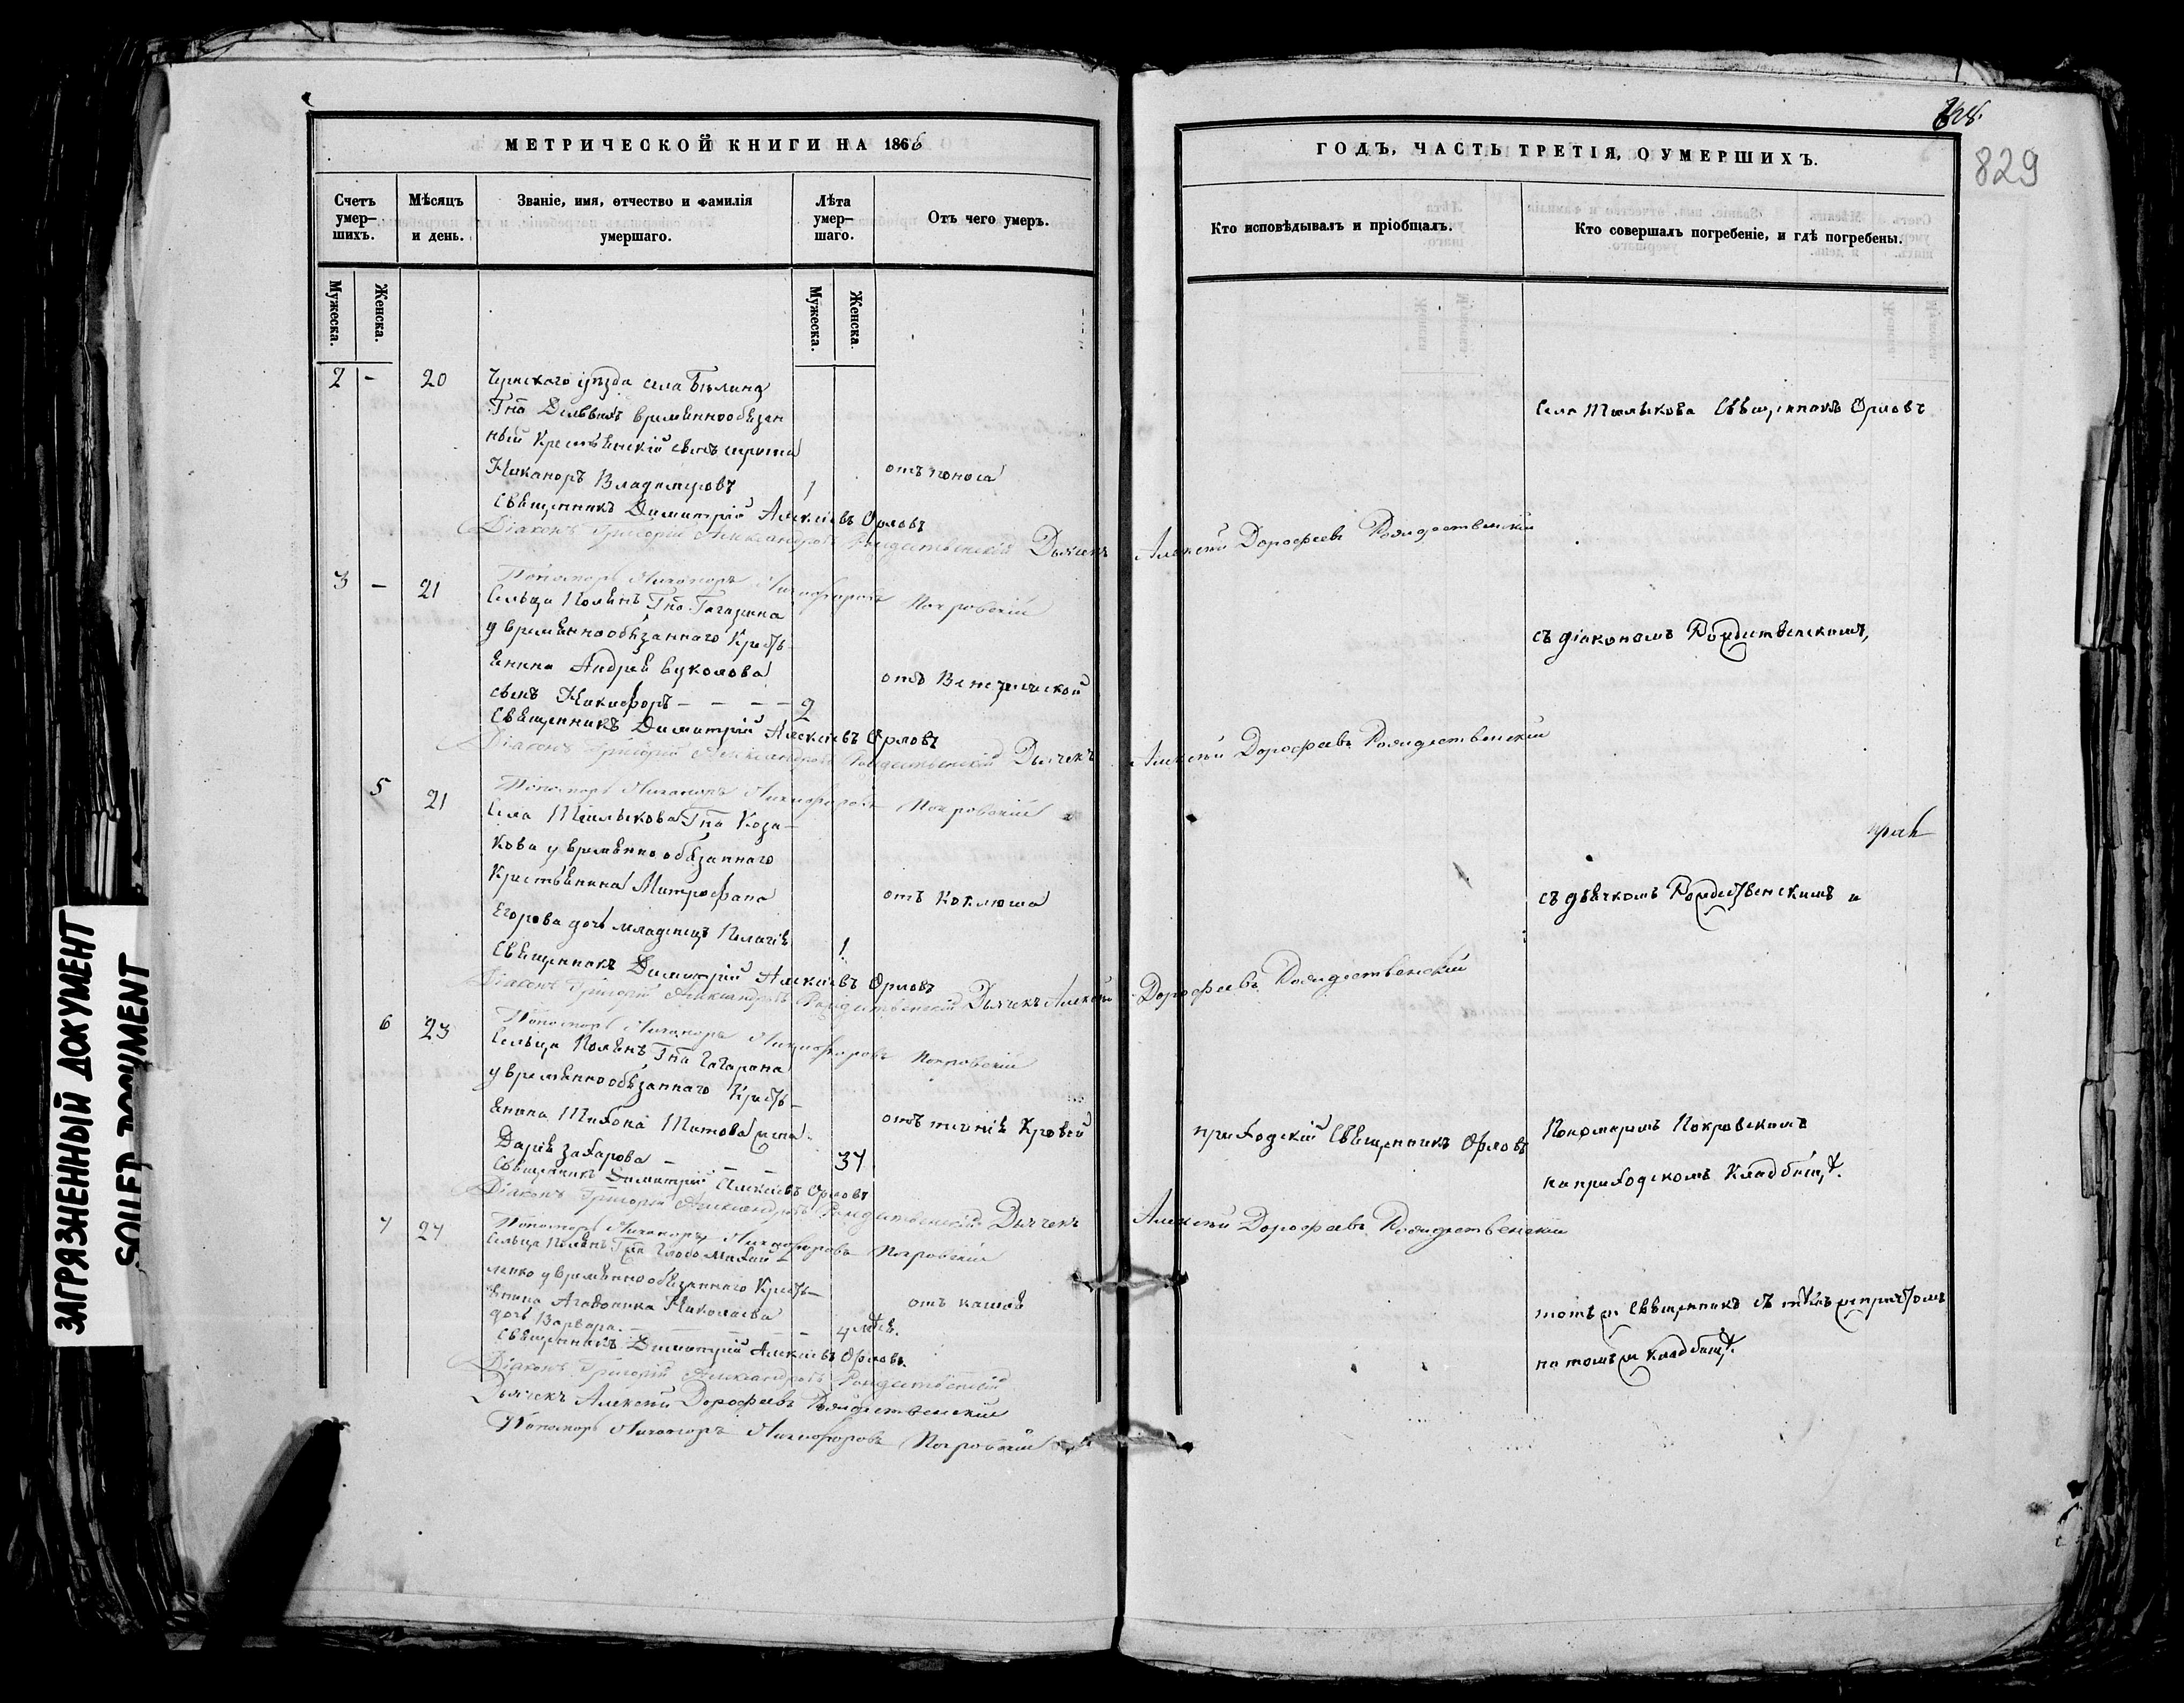 МЕТРИЧЕСКОЙ КНИГИ НА 1866
Счетъ умер-шихъ.
Мѣсяцъ и день.
Званіе, имя, отчество и фамилія умершаго.
Лѣта умер-шаго.
Отъ чего умеръ.
Мужеска.
Женска.
Мужеска.
Женска.
2 - 20
уѣзда села
Гна временнообязан
ный
Никаноръ Владимеровъ 1 отъ поноса
Священникъ Димитрій Алексіевъ Орловъ
Діаконъ Григорій Александровъ Рождественскій Дьячекъ Алексѣй Дорофеевъ Рождественскій
Пономарь Никаноръ Никифоровъ Покровскій
3 - 21
Сельца Полянъ Гна Гагарина
у временнообязаннаго Кресть-
янина Андрея Вуколова
сынъ Никифоръ - - - - 2
отъ
Священникъ Димитрій Алексіевъ Орловъ
Діаконъ Григорій Александровъ Рождественскій Дьячекъ Алексѣй Дорофеевъ Рождественскій
Пономарь Никаноръ Никифоровъ Покровскій
5 21
Села Гна Коза-
кова у временнообязаннаго
Крестьянина Митрофана
Егорова дочь младенецъ Пелагія 1
отъ Коклюша
Священникъ Димитрій Алексіевъ Орловъ
Діаконъ Григорій Александровъ Рождественскій Дьячекъ Алексѣй Дорофеевъ Рождественскій
Пономарь Никаноръ Никифоровъ Покровскій
6 23
Сельца Полянъ Гна Гагарина
у временнообязаннаго Кресть-
янина Тихона Титова жена
Дарія Захарова - - - 34
отъ теченія Кровей
Священникъ Димитрій Алексіевъ Орловъ
Діаконъ Григорій Александровъ Рождественскій Дьячекъ Алексѣй Дорофеевъ Рождественскій
Пономарь Никаноръ Никифоровъ Покровскій
7 27
Сельца Полянъ Гна
у временнообязаннаго Кресть-
янина Агафоника Николаева
дочь Варвара. - - - 4 мѣс.
отъ кашля
Священникъ Димитрій Алексіевъ Орловъ.
Діаконъ Григорій Александровъ Рождественскій
Дьячекъ Алексѣй Дорофеевъ Рождественскій
Пономарь Никаноръ Никифоровъ Покровскій
829
ГОДЪ, ЧАСТЬ ТРЕТІЯ, О УМЕРШИХЪ.
Кто исповѣдывалъ и пріобщалъ.
Кто совершалъ погребеніе, и гдѣ погребены.
Села Священникъ Орловъ
съ діакономъ Рождественскимъ,
съ дьячкомъ Рождественскимъ и
приходскій Священникъ Орловъ
Пономаремъ Покровскимъ
на приходскомъ Кладбищѣ.
тотъ же Священникъ съ тѣмъ же причтомъ
на томъ же Кладбищѣ.
ЗАГРЯЗНЕННЫЙ ДОКУМЕНТ
SOILED DOCUMENT